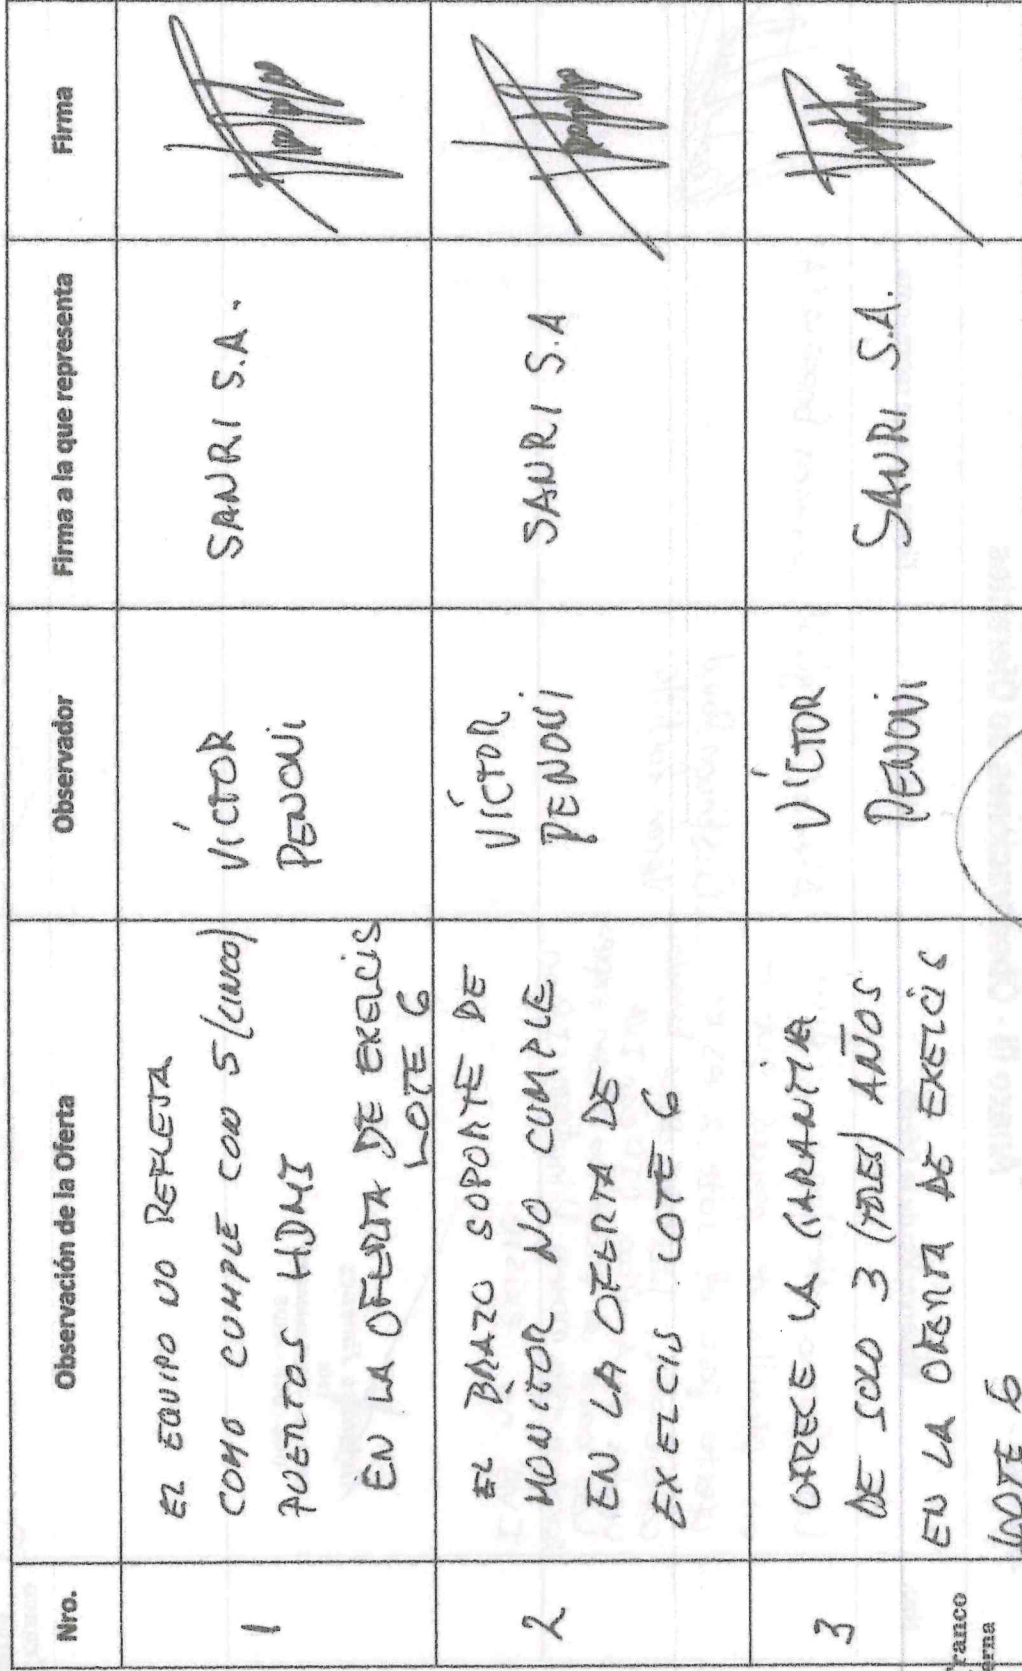 Nro.
Observación de la Oferta
Observador
Firma a la que representa
Firma
1
EL EQUIPO NO REFLEJA
COMO CUMPLE CON 5 (CINCO)
PUERTOS HDMI
EN LA OFERTA DE EXELCIS
LOTE 6
VÍCTOR
PENONI
SANRI S.A.
2
EL BRAZO SOPORTE DE
MONITOR NO CUMPLE
EN LA OFERTA DE
EXELCIS LOTE 6
VÍCTOR
PENONI
SANRI S.A
3
OFRECE LA GARANTIA
DE SOLO 3 (TRES) AÑOS
EN LA OFERTA DE EXELCIS
LOTE 6
VÍCTOR
PENONI
SANRI S.A.
ranco
erna